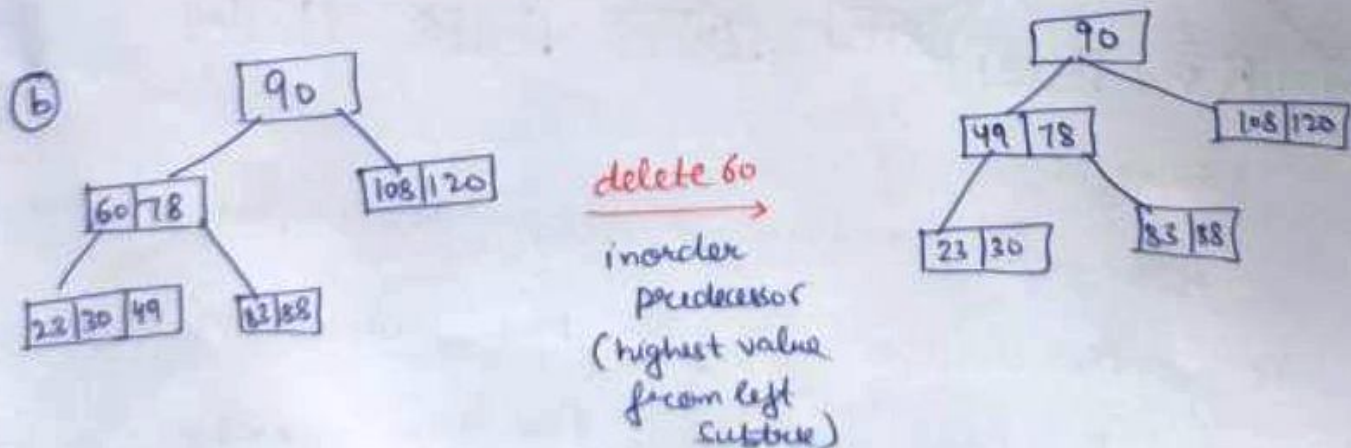 b
90
60 78
108 120
23 30 49
83 88
delete 60
inorder
predecessor
(highest value
from left
subtree)
90
49 78
108 120
23 30
83 88